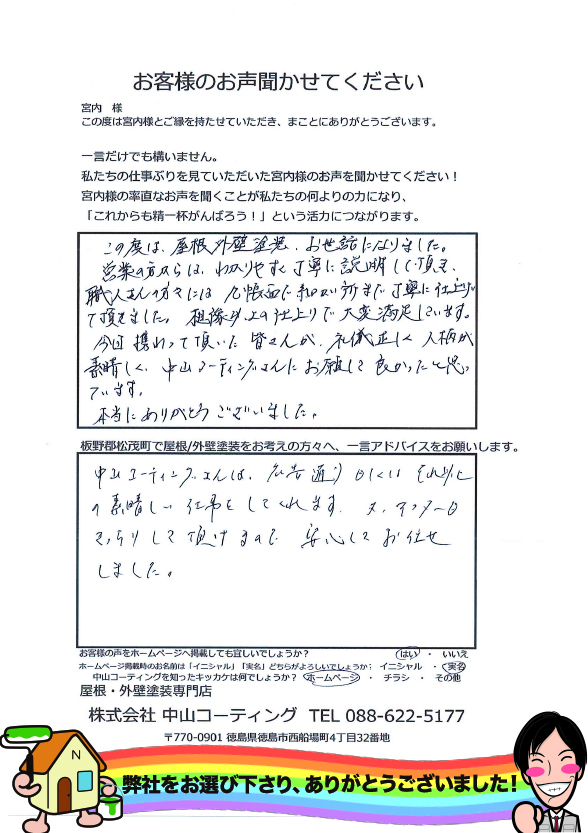 お客様のお声聞かせてください
宮内　様
この度は宮内様とご縁を持たせていただき、まことにありがとうございます。
一言だけでも構いません。
私たちの仕事ぶりを見ていただいた宮内様のお声を聞かせてください！
宮内様の率直なお声を聞くことが私たちの何よりの力になり、
「これからも精一杯がんばろう！」という活力につながります。
この度は、屋根外壁塗装、お世話になりました。
営業の方からは、わかりやすく丁寧に説明して頂き、
職人さんの方々には几帳面に細かい所まで丁寧に仕上げ
て頂きました。想像以上の仕上りで大変満足しています。
今回携わって頂いた皆さんが、礼儀正しく人柄が
素晴しく、中山コーティングさんにお願して良かったと思っ
ています。
本当にありがとうございました。
板野郡松茂町で屋根/外壁塗装をお考えの方々へ、一言アドバイスをお願いします。
中山コーティングさんは、広告通り
の素晴しい仕事をしてくれます。又、アフターも
して頂けますので 安心してお任せ
しました。
お客様の声をホームページへ掲載しても宜しいでしょうか？　はい ・ いいえ
ホームページ掲載時のお名前は「イニシャル」「実名」どちらがよろしいでしょうか： イニシャル ・ 実名
中山コーティングを知ったキッカケは何でしょうか？ ホームページ ・ チラシ ・ その他
屋根・外壁塗装専門店
株式会社 中山コーティング TEL 088-622-5177
〒770-0901 徳島県徳島市西船場町4丁目32番地
N
弊社をお選び下さり、ありがとうございました！